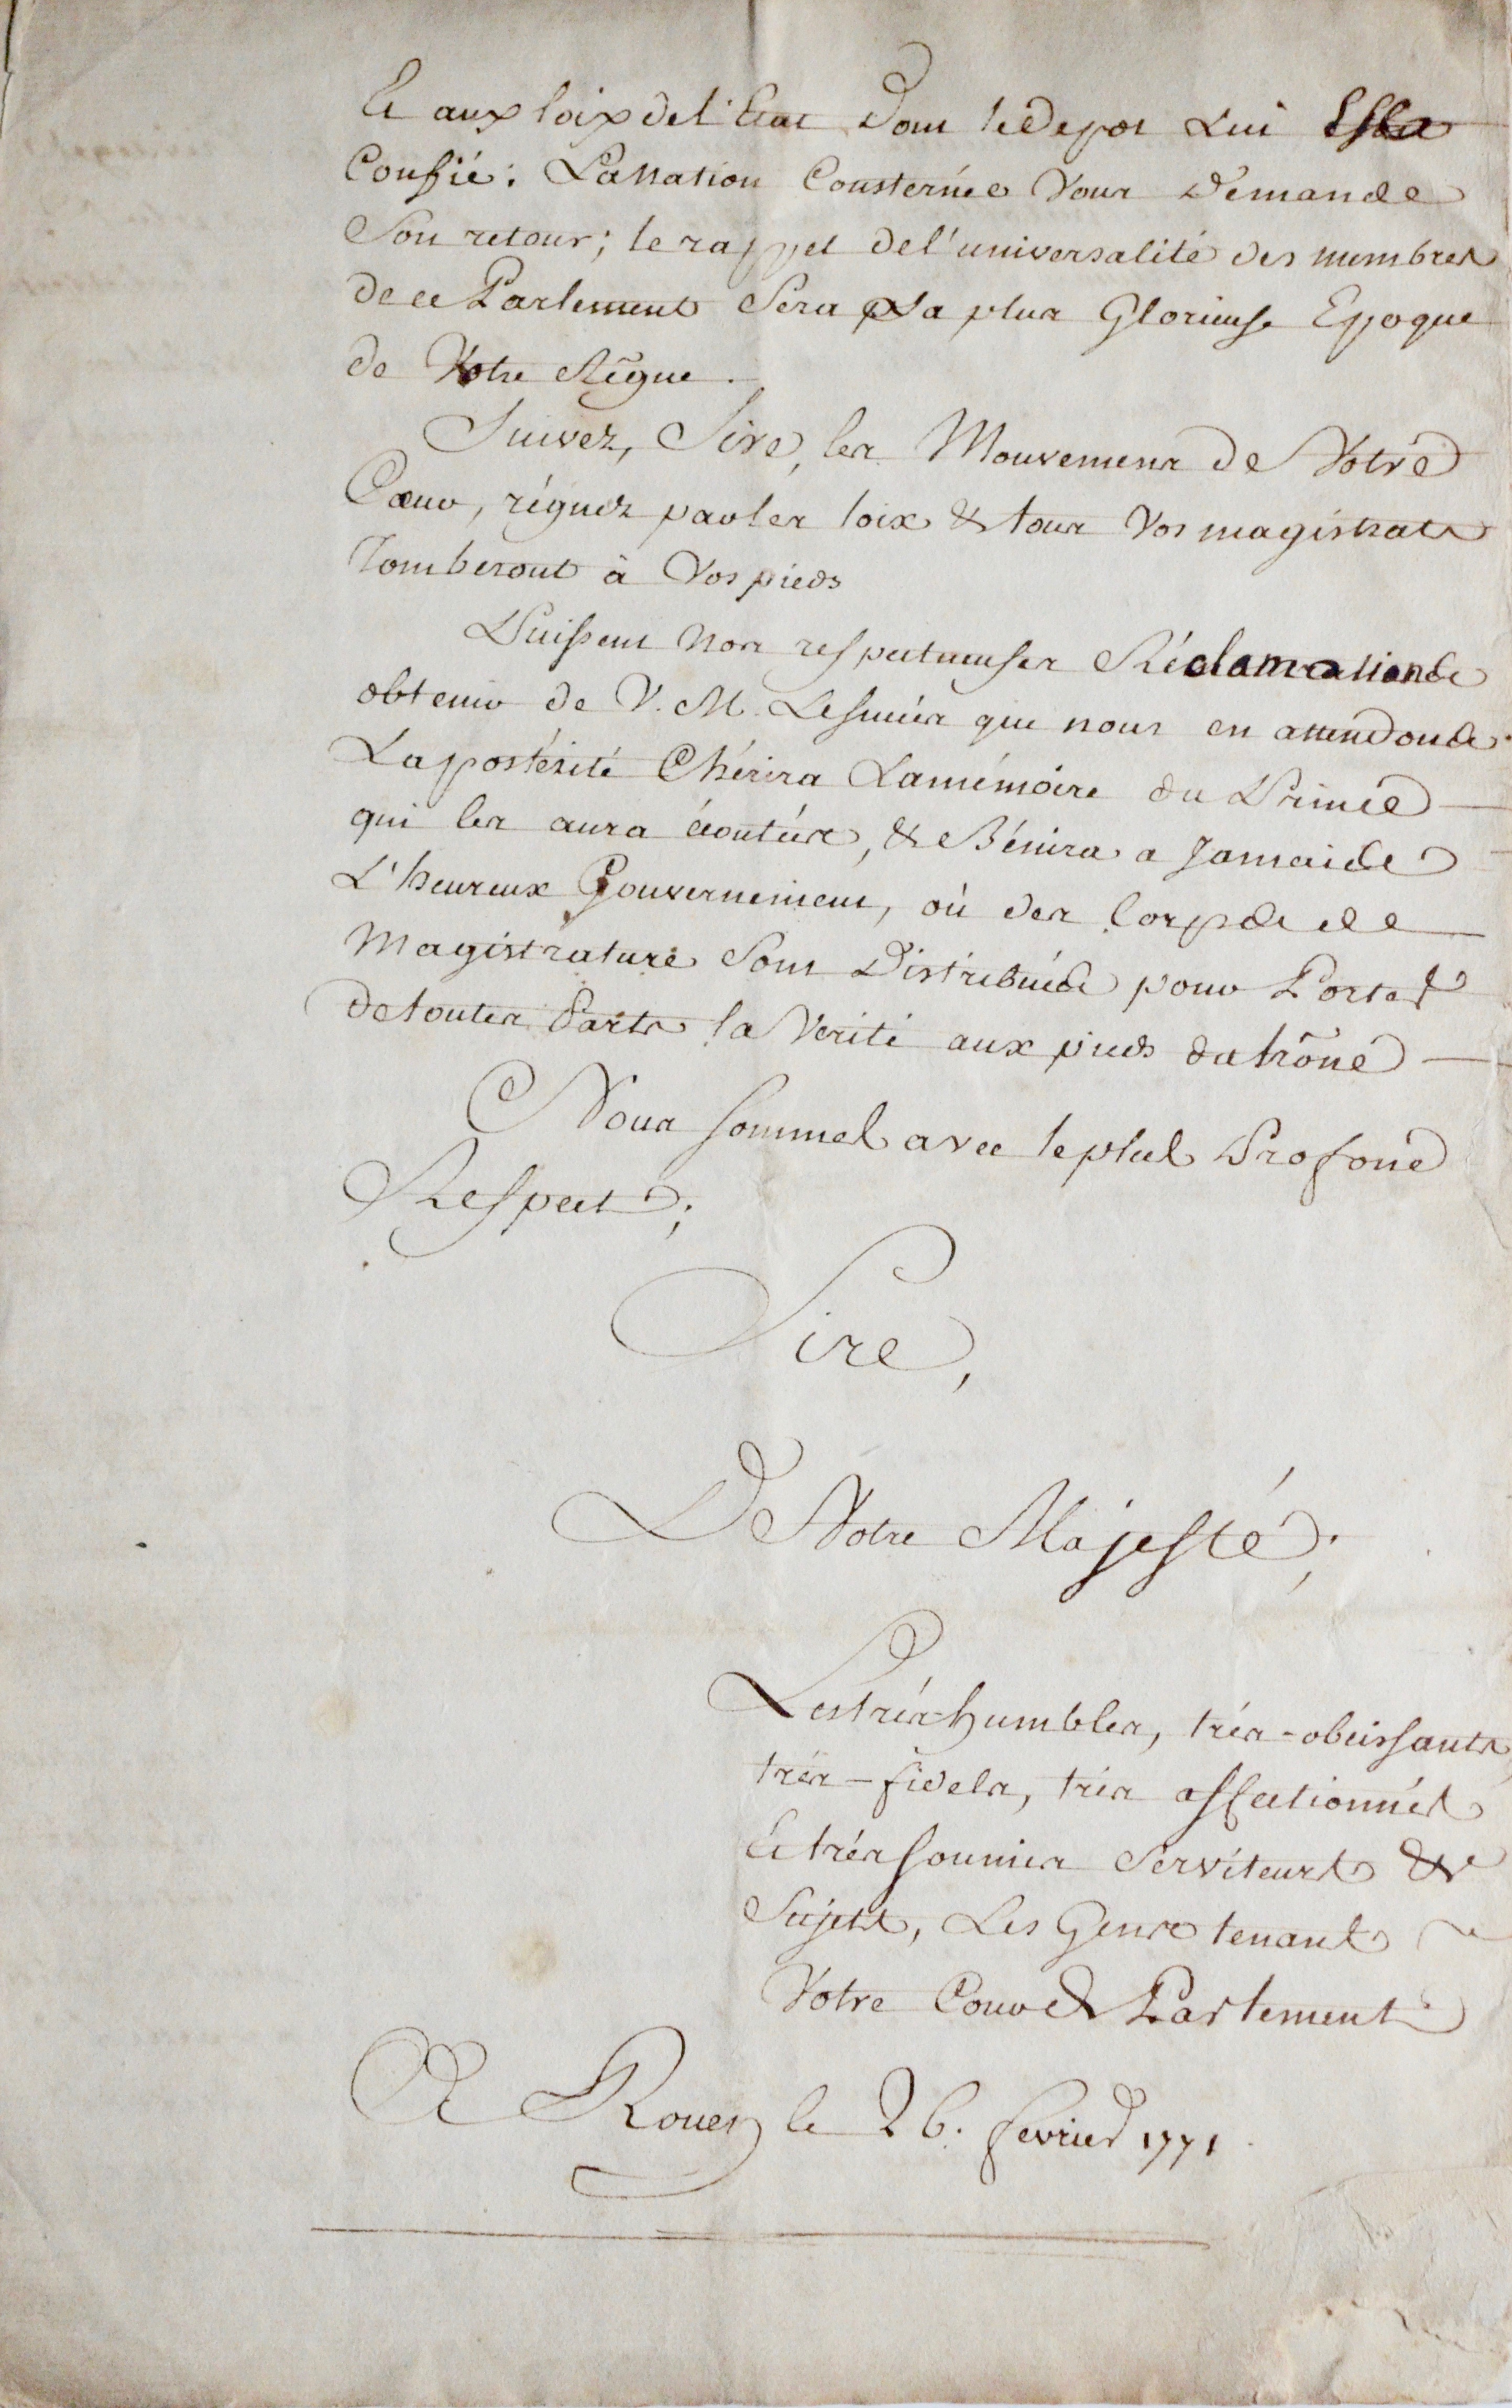 Et aux loix de l'Etat dont le Depot Lui Est
Confié: La Nation Consternée Vous Demande
Son retour; le rappel de l'universalité des membres
de ce Parlement Sera la plus Glorieuse Epoque
de Votre Règne.
Suivez, Sire, les Mouvemens de Votre
Cœur, régnez par les loix & tous Vos magistrats
Tomberont à Vos pieds
Puissent Nos respectueuses Réclamations
obtenir de V. M. Le succès que nous en attendons.
La postérité Chérira La mémoire du Prince
qui les aura écoutées, & Bénira a Jamais
L'heureux Gouvernement, où des Corps de
Magistrature Sont Distribués pour Porter
de toutes Parts la Verité aux pieds du trône
Nous sommes avec le plus Profond
Respect;
Sire,
De Votre Majesté;
Les très-humbles, très-obeissants
très-fidels, très affectionnés
Et très soumis Serviteurs &
Sujets, Les Gens tenants
Votre Cour de Parlement
A Rouen le 26. fevrier 1771.